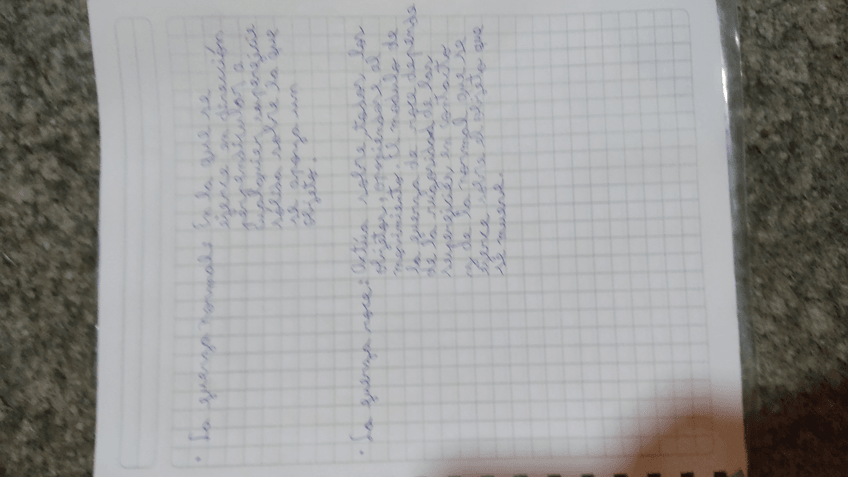 • La fuerza normal: Es la que se
ejerce en dirección
perpendicular a
cualquier superficie
sobre la que
se apoya un
objeto.
• La fuerza roce: Actúa sobre todos los
objetos, oponiendose al
movimiento. El módulo de
la fuerza de roce depende
de la rugosidad de las
superficies en contacto
y de la normal que se
ejerce sobre el objeto que
se mueve.